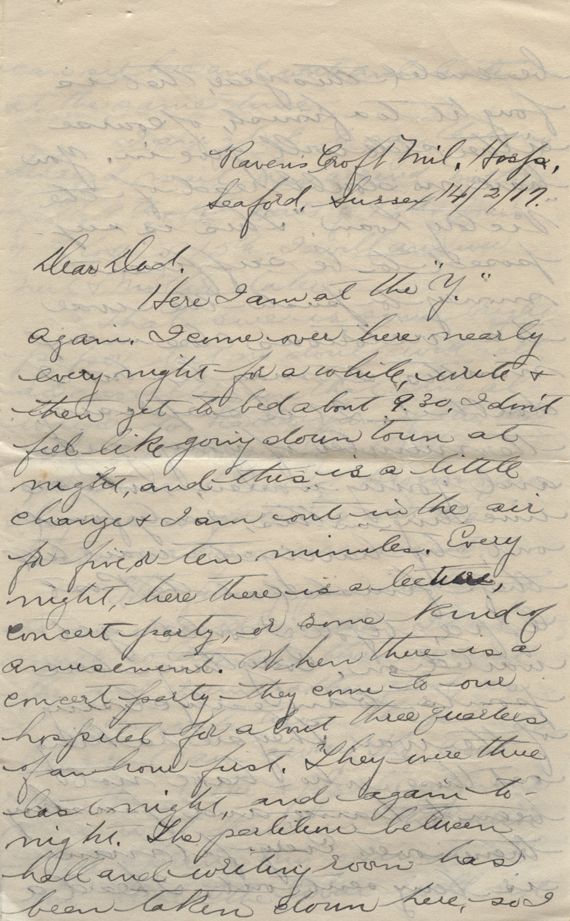 Ravens Croft Mil. Hosp.,
Seaford, Sussex 14/2/17.
Dear Dad.
Here I am at the "Y."
again. I come over here nearly
every night for a while, write &
then get to bed about 9.30. I don't
feel like going down town at
night, and this is a little
change & I am out in the air
for five or ten minutes. Every
night, here there is a lecture,
concert party, or some kind of
amusement. When there is a
concert party they come to our
hospital for about three quarters
of an hour first. They were there
last night, and again to-
night. The partition between
hall and writing room has
been taken down here, so I